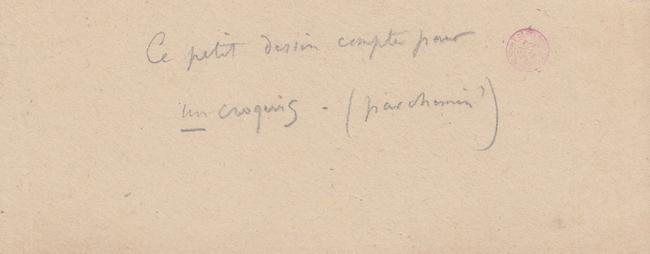 Ce petit dessin compte pour
un croquis - (parchemin)